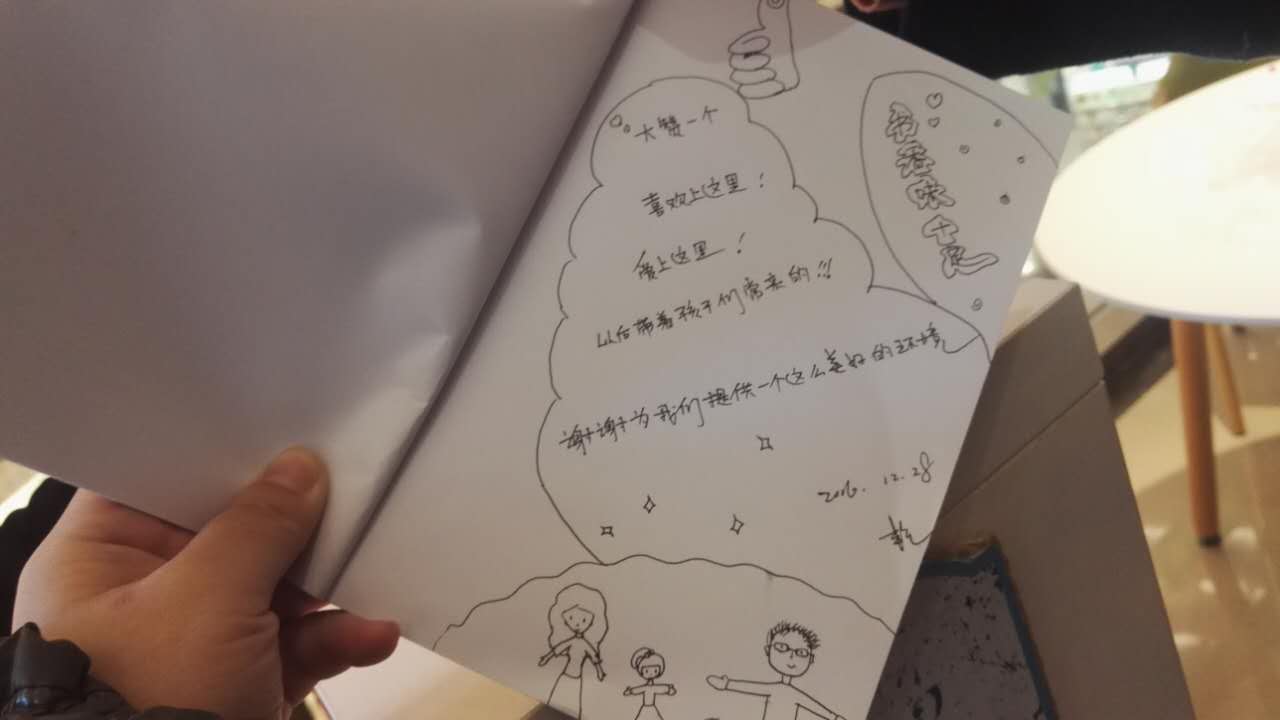 大赞一个
喜欢上这里！
爱上这里！
以后带着孩子们常来的!!!
谢谢为我们提供一个这么美好的环境
2016.12.28